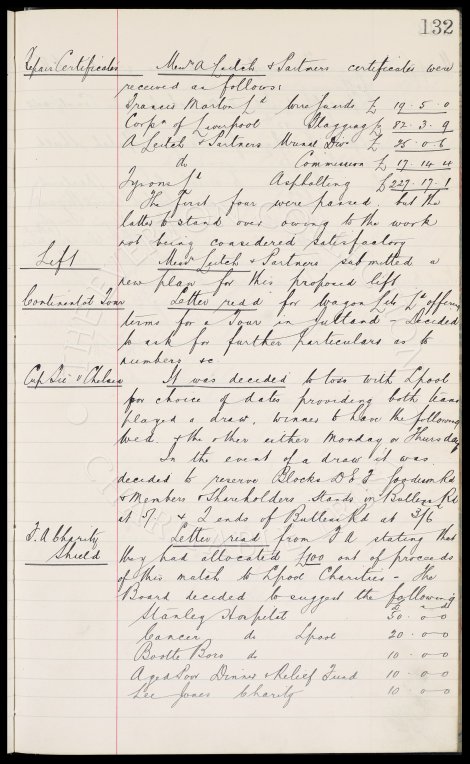 132
Repair Certificates Messrs A Leitch & Partners certificates were
received as follows:
Francis Morton Ld Wire Guards £ 19.5.0
Corpn of Liverpool Flagging £ 52.3.9
A Leitch & Partners Urinal Divn £ 25.0.6
do Commission £ 17.14.4
Tyrone Ld Asphalting £ 227.17.1
The first four were passed, but the
latter to stand over owing to the work
not being considered satisfactory
Lift Messrs Leitch & Partners submitted a
new plan for this proposed lift
Continental Tour Letter read for Wagon Lits Ld offering
terms for a Tour in Jutland - Decided
to ask for further particulars as to
numbers &c.
Cup Tie v Chelsea It was decided to toss with Lpool
for choice of dates providing both teams
played a draw, winner to have the following
Wed. & the other either Monday or Thursday
In the event of a draw it was
decided to reserve Blocks D E F Goodison Rd
& Members & Shareholders Stands in Bullens Rd
at 5/- & 2 ends of Bullens Rd at 3/6
F. A Charity Shield Letter read from F A stating that
they had allocated £100 out of proceeds
of this match to Lpool Charities - The
Board decided to suggest the following
£ s d
Stanley Hospital 50.0.0
Cancer do Lpool 20.0.0
Bootle Boro do 10.0.0
Aged Poor Dinner & Relief Fund 10.0.0
Lee Jones Charity 10.0.0